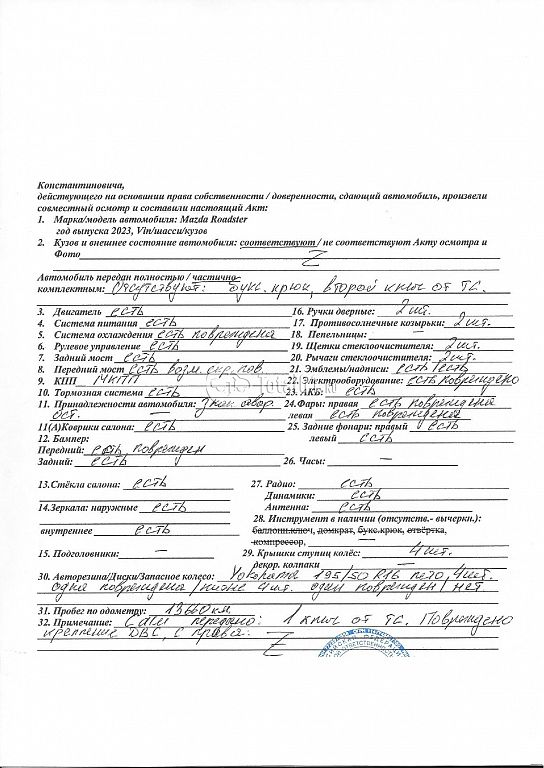 Константиновича,
действующего на основании права собственности / доверенности, сдающий автомобиль, произвели
совместный осмотр и составили настоящий Акт:
1. Марка/модель автомобиля: Mazda Roadster
год выпуска 2023, Vin/шасси/кузов
2. Кузов и внешнее состояние автомобиля: соответствуют / не соответствуют Акту осмотра и
Фото Z
Автомобиль передан полностью / частично
комплектным: Отсутствуют: букс. крюк, второй ключ от ТС.
3. Двигатель есть 16. Ручки дверные: 2 шт.
4. Система питания есть 17. Противосолнечные козырьки: 2 шт.
5. Система охлаждения есть повреждена 18. Пепельницы: —
6. Рулевое управление есть 19. Щетки стеклоочистителя: 2 шт.
7. Задний мост есть 20. Рычаги стеклоочистителя: 2 шт.
8. Передний мост есть возм. скр. пов. 21. Эмблемы/надписи: есть / есть
9. КПП МКПП 22. Электрооборудование: есть повреждено
10. Тормозная система есть 23. АКБ: есть
11. Принадлежности автомобиля: Знак авар. 24. Фары: правая есть повреждена
ост. — левая есть повреждена
11(А) Коврики салона: есть 25. Задние фонари: правый есть
12. Бампер: левый есть
Передний: есть поврежден
Задний: есть 26. Часы: —
13. Стёкла салона: есть 27. Радио: есть
Динамики: есть
14. Зеркала: наружные есть Антенна есть
28. Инструмент в наличии (отсутств.- вычеркн.):
внутреннее есть баллонн.ключ, домкрат, букс.крюк, отвёртка,
компрессор,
15. Подголовники: — 29. Крышки ступиц колёс: 4 шт.
декор. колпаки —
30. Авторезина/Диски/Запасное колесо: Yokohama 195/50 R16 лето, 4 шт.
одна повреждена / 4 шт. один поврежден / нет
31. Пробег по одометру: 13660 км
32. Примечание: передано: 1 ключ от ТС. Повреждено
крепление ДВС, с права. Z